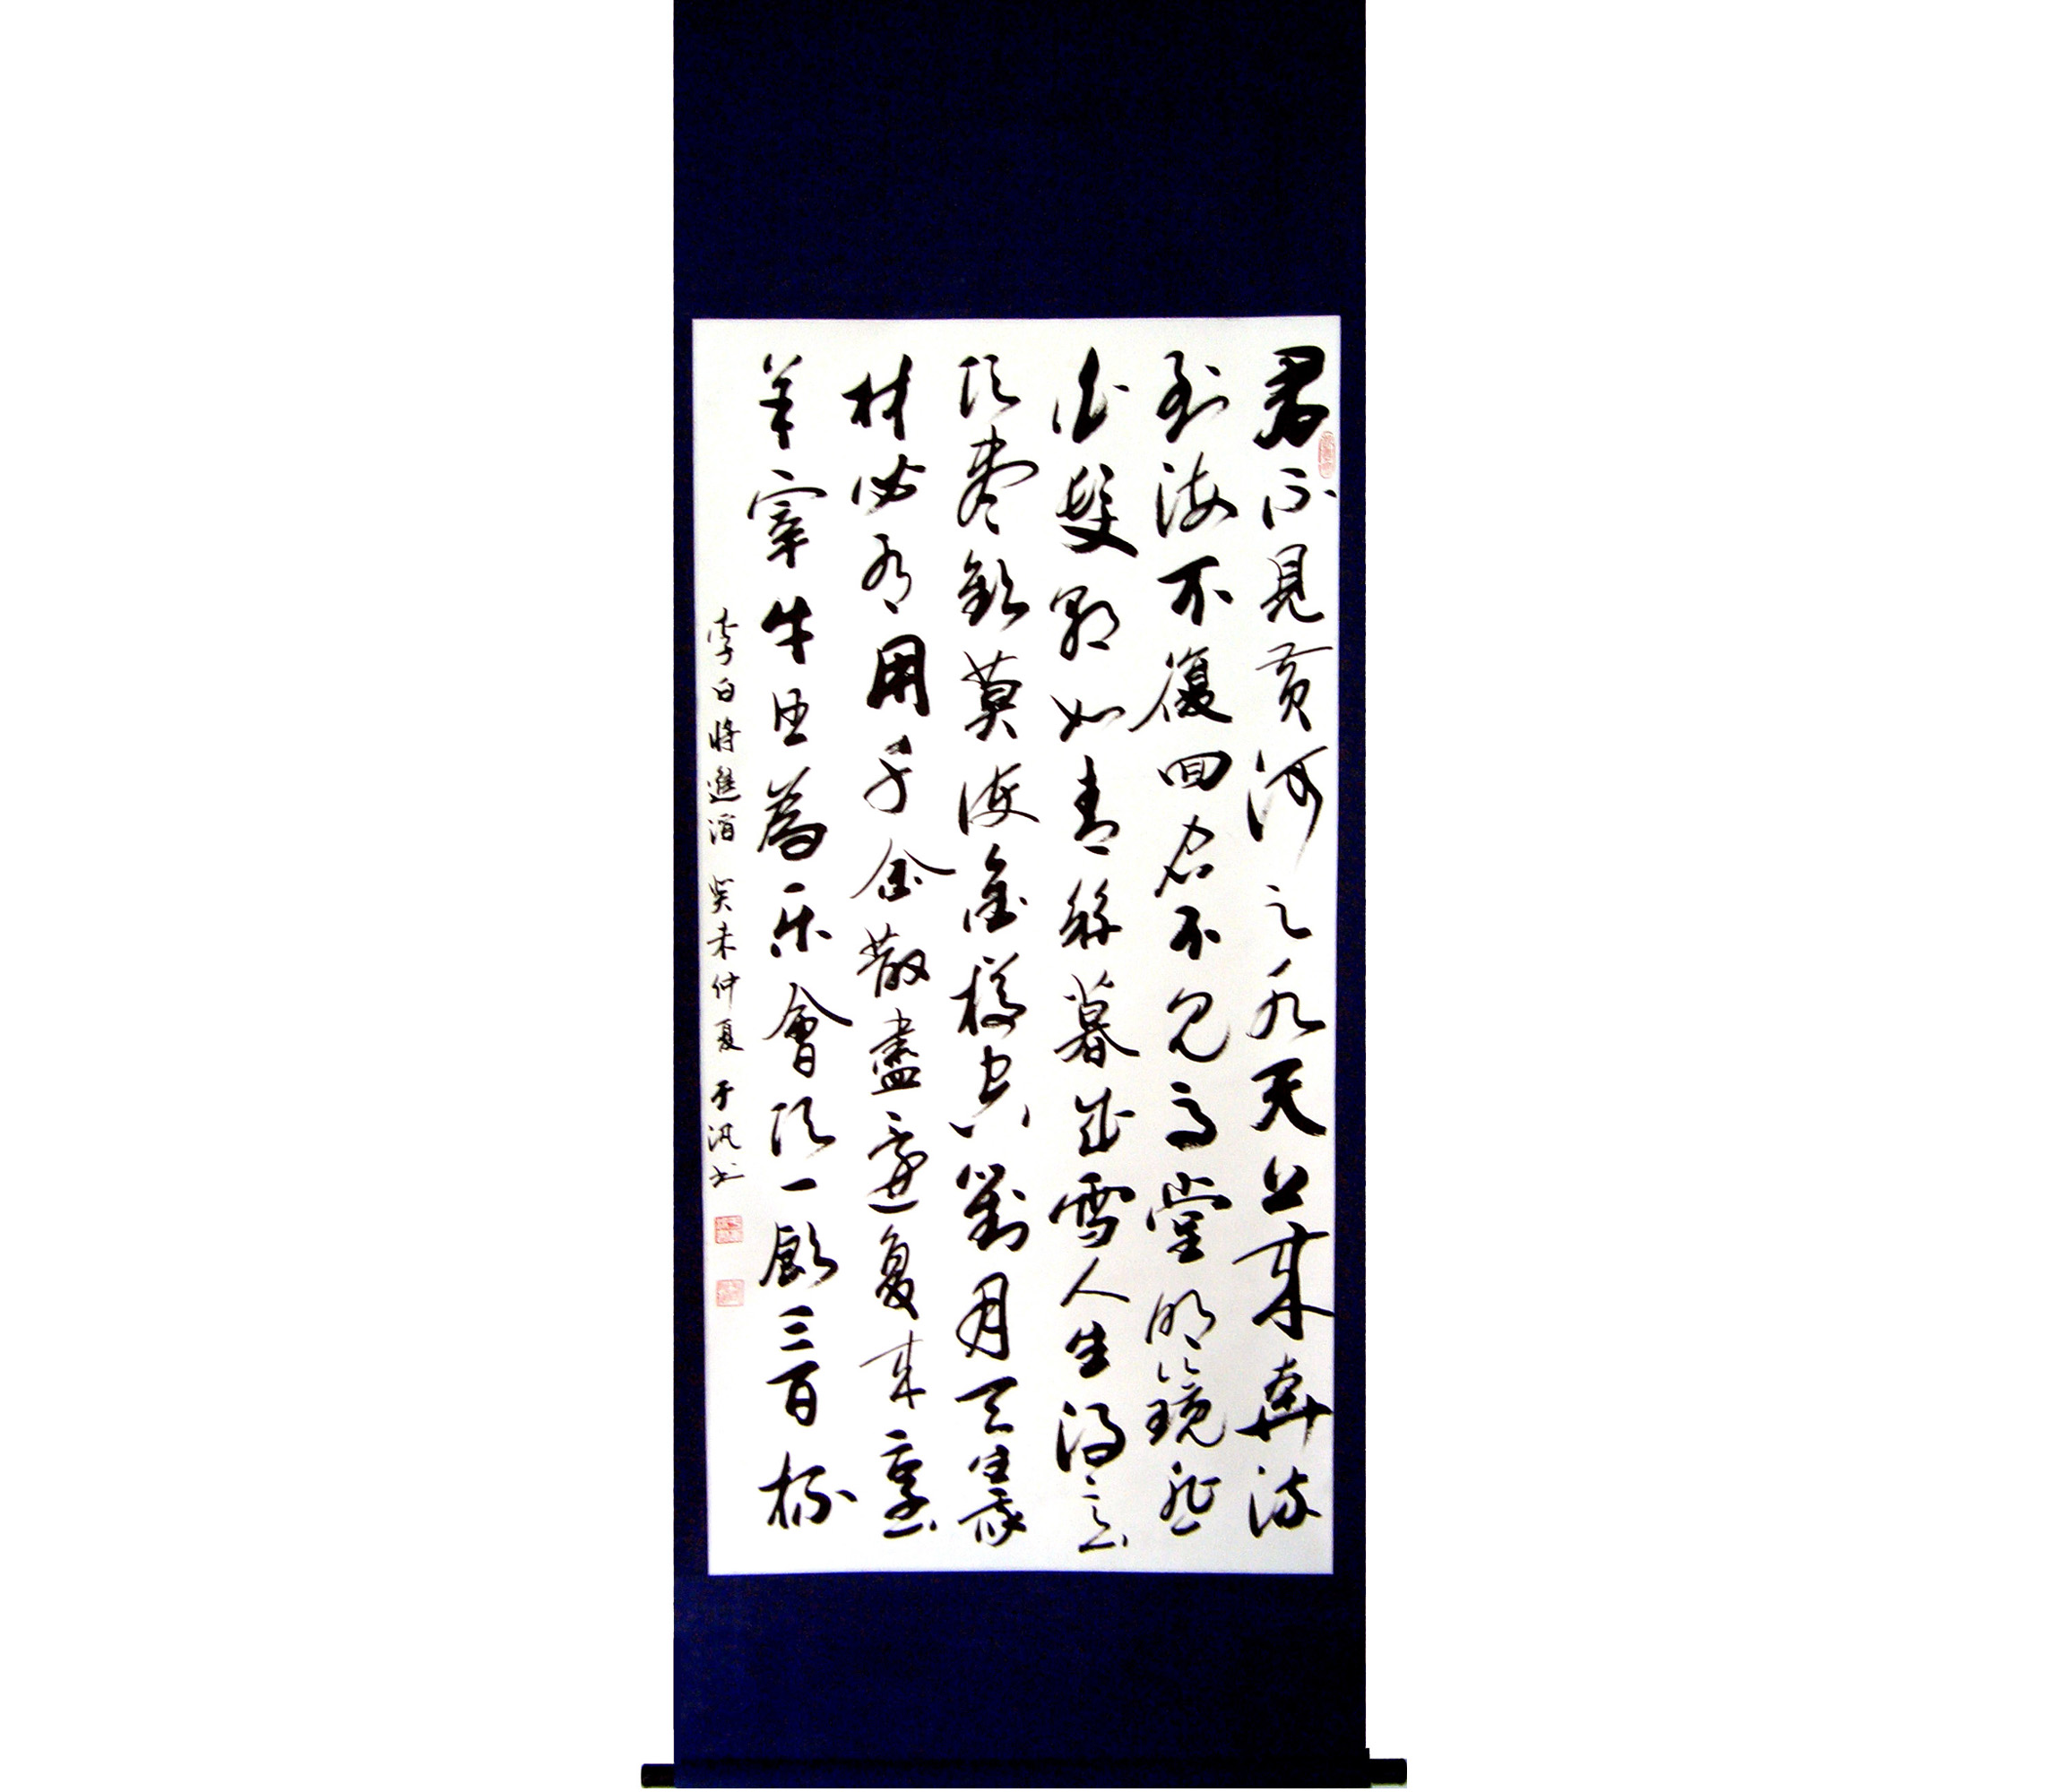 君不見黄河之水天上來奔流
到海不復回君不見高堂明鏡悲
白髮朝如青絲暮成雪人生得意
須盡歡莫使金樽空對月天生我
材必有用千金散盡還复來烹
羊宰牛且為乐會須一飲三百杯
李白將進酒 癸未仲夏 于 书